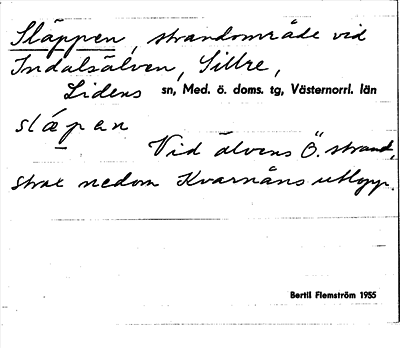 Släppen, strandområde vid
Indalsälven, Sillre,
Lidens sn, Med. ö. doms. tg, Västernorrl. län
slápen
Vid älvens Ö. strand,
strax nedom Kvarnåns utlopp.
Bertil Flemström 1955